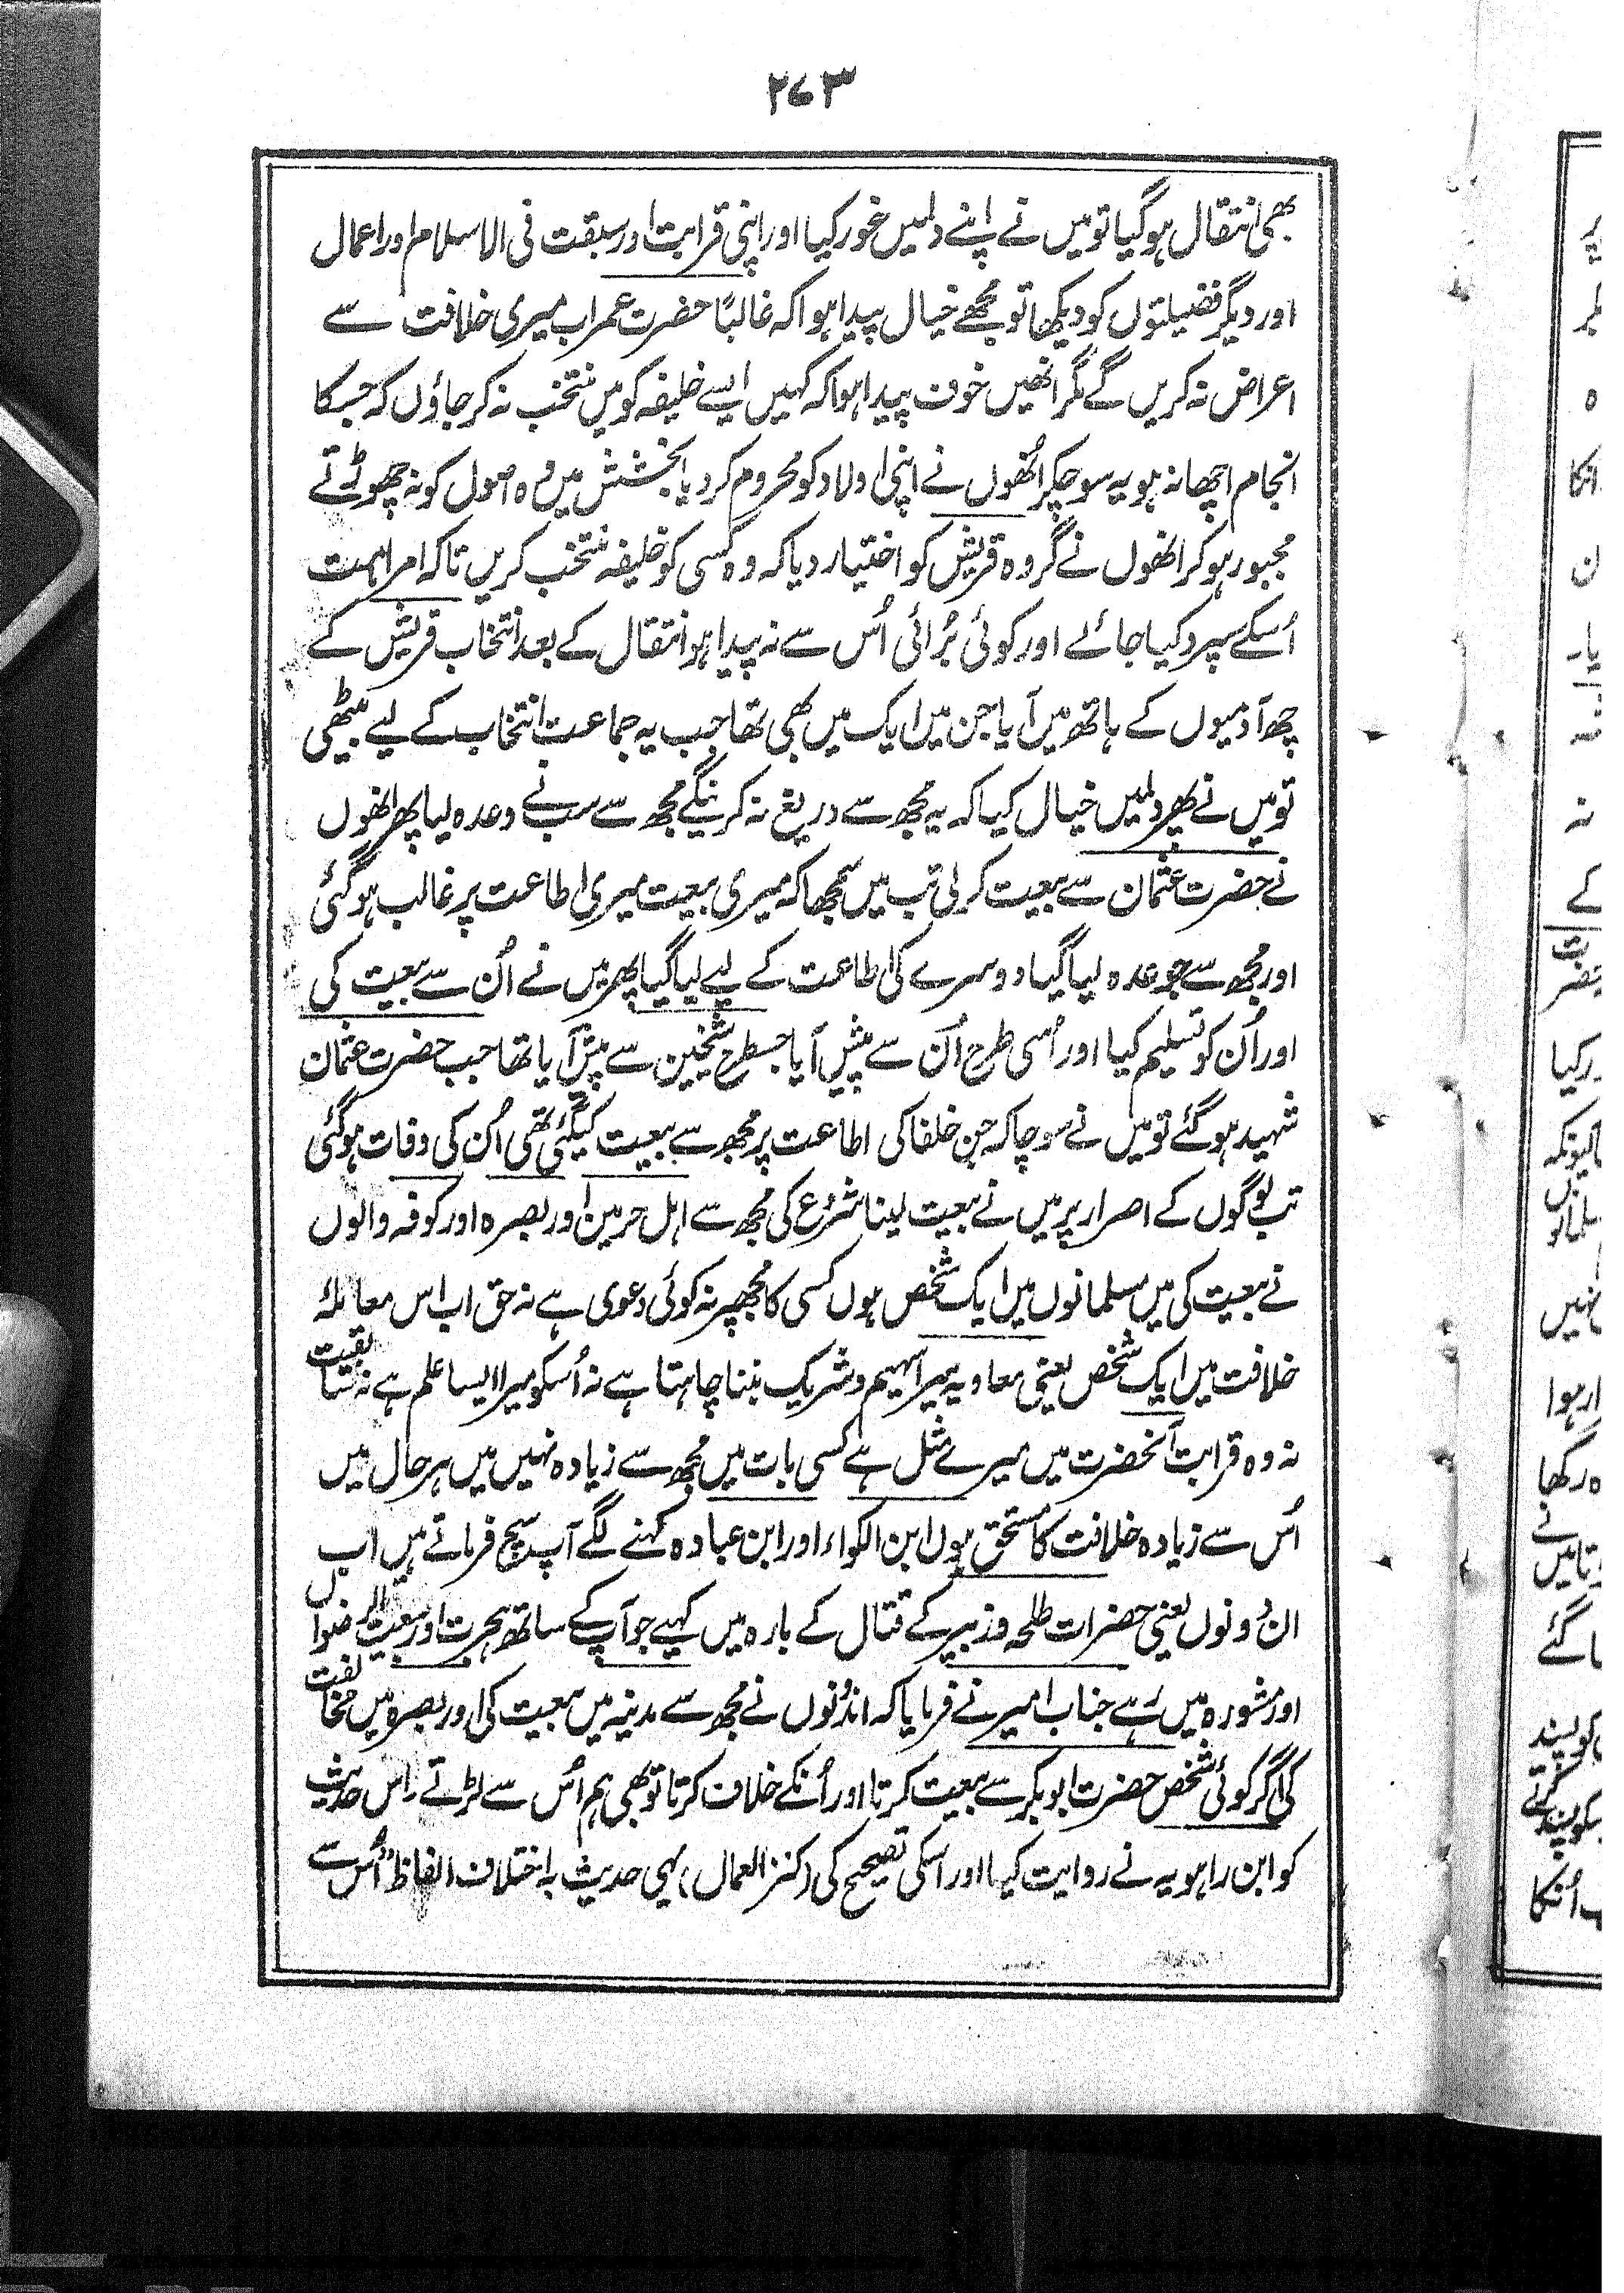 ۲۷۳
بھی انتقال ہوگیا تو میں نے اپنے دلمیں غور کیا اور اپنی قرابت اور سبقت فی الاسلام اور اعمال
اور دیگر فضیلتوں کو دیکھا تو مجھے خیال پیدا ہوا کہ غالبًا حضرت عمر اب میری خلافت سے
اعراض نہ کریں گے مگر انھیں خوف پیدا ہوا کہ کہیں ایسے خلیفہ کو میں منتخب نہ کر جاؤں کہ جسکا
انجام اچھا نہ ہو یہ سوچکر اُنھوں نے اپنی اولاد کو محروم کر دیا بخشش میں وہ اصول کو نہ چھوڑتے
مجبور ہو کر انھوں نے گروہ قریش کو اختیار دیا کہ وہ کسی کو خلیفہ منتخب کریں تاکہ امر اہمت
اُسکے سپرد کیا جائے اور کوئی بُرائی اُس سے نہ پیدا ہو انتقال کے بعد انتخاب قریش کے
چھ آدمیوں کے ہاتھ میں آیا جن میں ایک میں بھی تھا جب یہ جماعت انتخاب کے لیے بیٹھی
تو میں نے پھر دلمیں خیال کیا کہ یہ مجھ سے دریغ نہ کرینگے مجھ سے سب نے وعدہ لیا پھر انھوں
نے حضرت عثمان سے بیعت کر لی تب میں سمجھا کہ میری بیعت میری اطاعت پر غالب ہو گئی
اور مجھ سے جو عدہ لیا گیا دوسرے کی اطاعت کے لیے لیا گیا پھر میں نے اُن سے بیعت کی
اور اُن کو تسلیم کیا اور اُسی طرح اُن سے پیش آیا جسطرح شیخین سے پیش آیا تھا جب حضرت عثمان
شہید ہو گئے تو میں نے سوچا کہ جن خلفا کی اطاعت پر مجھ سے بیعت کیگئی تھی اُن کی وفات ہو گئی
تب لوگوں کے اصرار پر میں نے بیعت لینا شروع کی مجھ سے اہل حرمین اور بصرہ اور کوفہ والوں
نے بیعت کی میں مسلمانوں میں ایک شخص ہوں کسی کا مجھپر نہ کوئی دعوی ہے نہ حق اب اس معاملۂ
خلافت میں ایک شخص یعنی معاویہ میرا سہیم و شریک بننا چاہتا ہے نہ اُسکو میرا ایسا علم ہے نہ سابقیت
نہ وہ قرابت آنحضرت میں میرے مثل ہے کسی بات میں مجھ سے زیادہ نہیں میں ہر حال میں
اُس سے زیادہ خلافت کا مستحق ہوں ابن الکواء اور ابن عبادہ کہنے لگے آپ سچ فرماتے ہیں اب
ان دونوں یعنی حضرات طلحہ و زبیر کے قتال کے بارہ میں کہیے جو آپ کے ساتھ ہجرت اور بیعت الرضواں
اور مشورہ میں رہے جناب امیر نے فرمایا کہ اندونوں نے مجھ سے مدینہ میں بیعت کی اور بصرہ میں مخالفت
کی اگر کوئی شخص حضرت ابوبکر سے بیعت کرتا اور اُنکے خلاف کرتا تو بھی ہم اُس سے لڑتے اس حدیث
کو ابن راہویہ نے روایت کیا اور اسکی تصحیح کی (کنز العمال) یہی حدیث بہ اختلاف الفاظ اُس سے